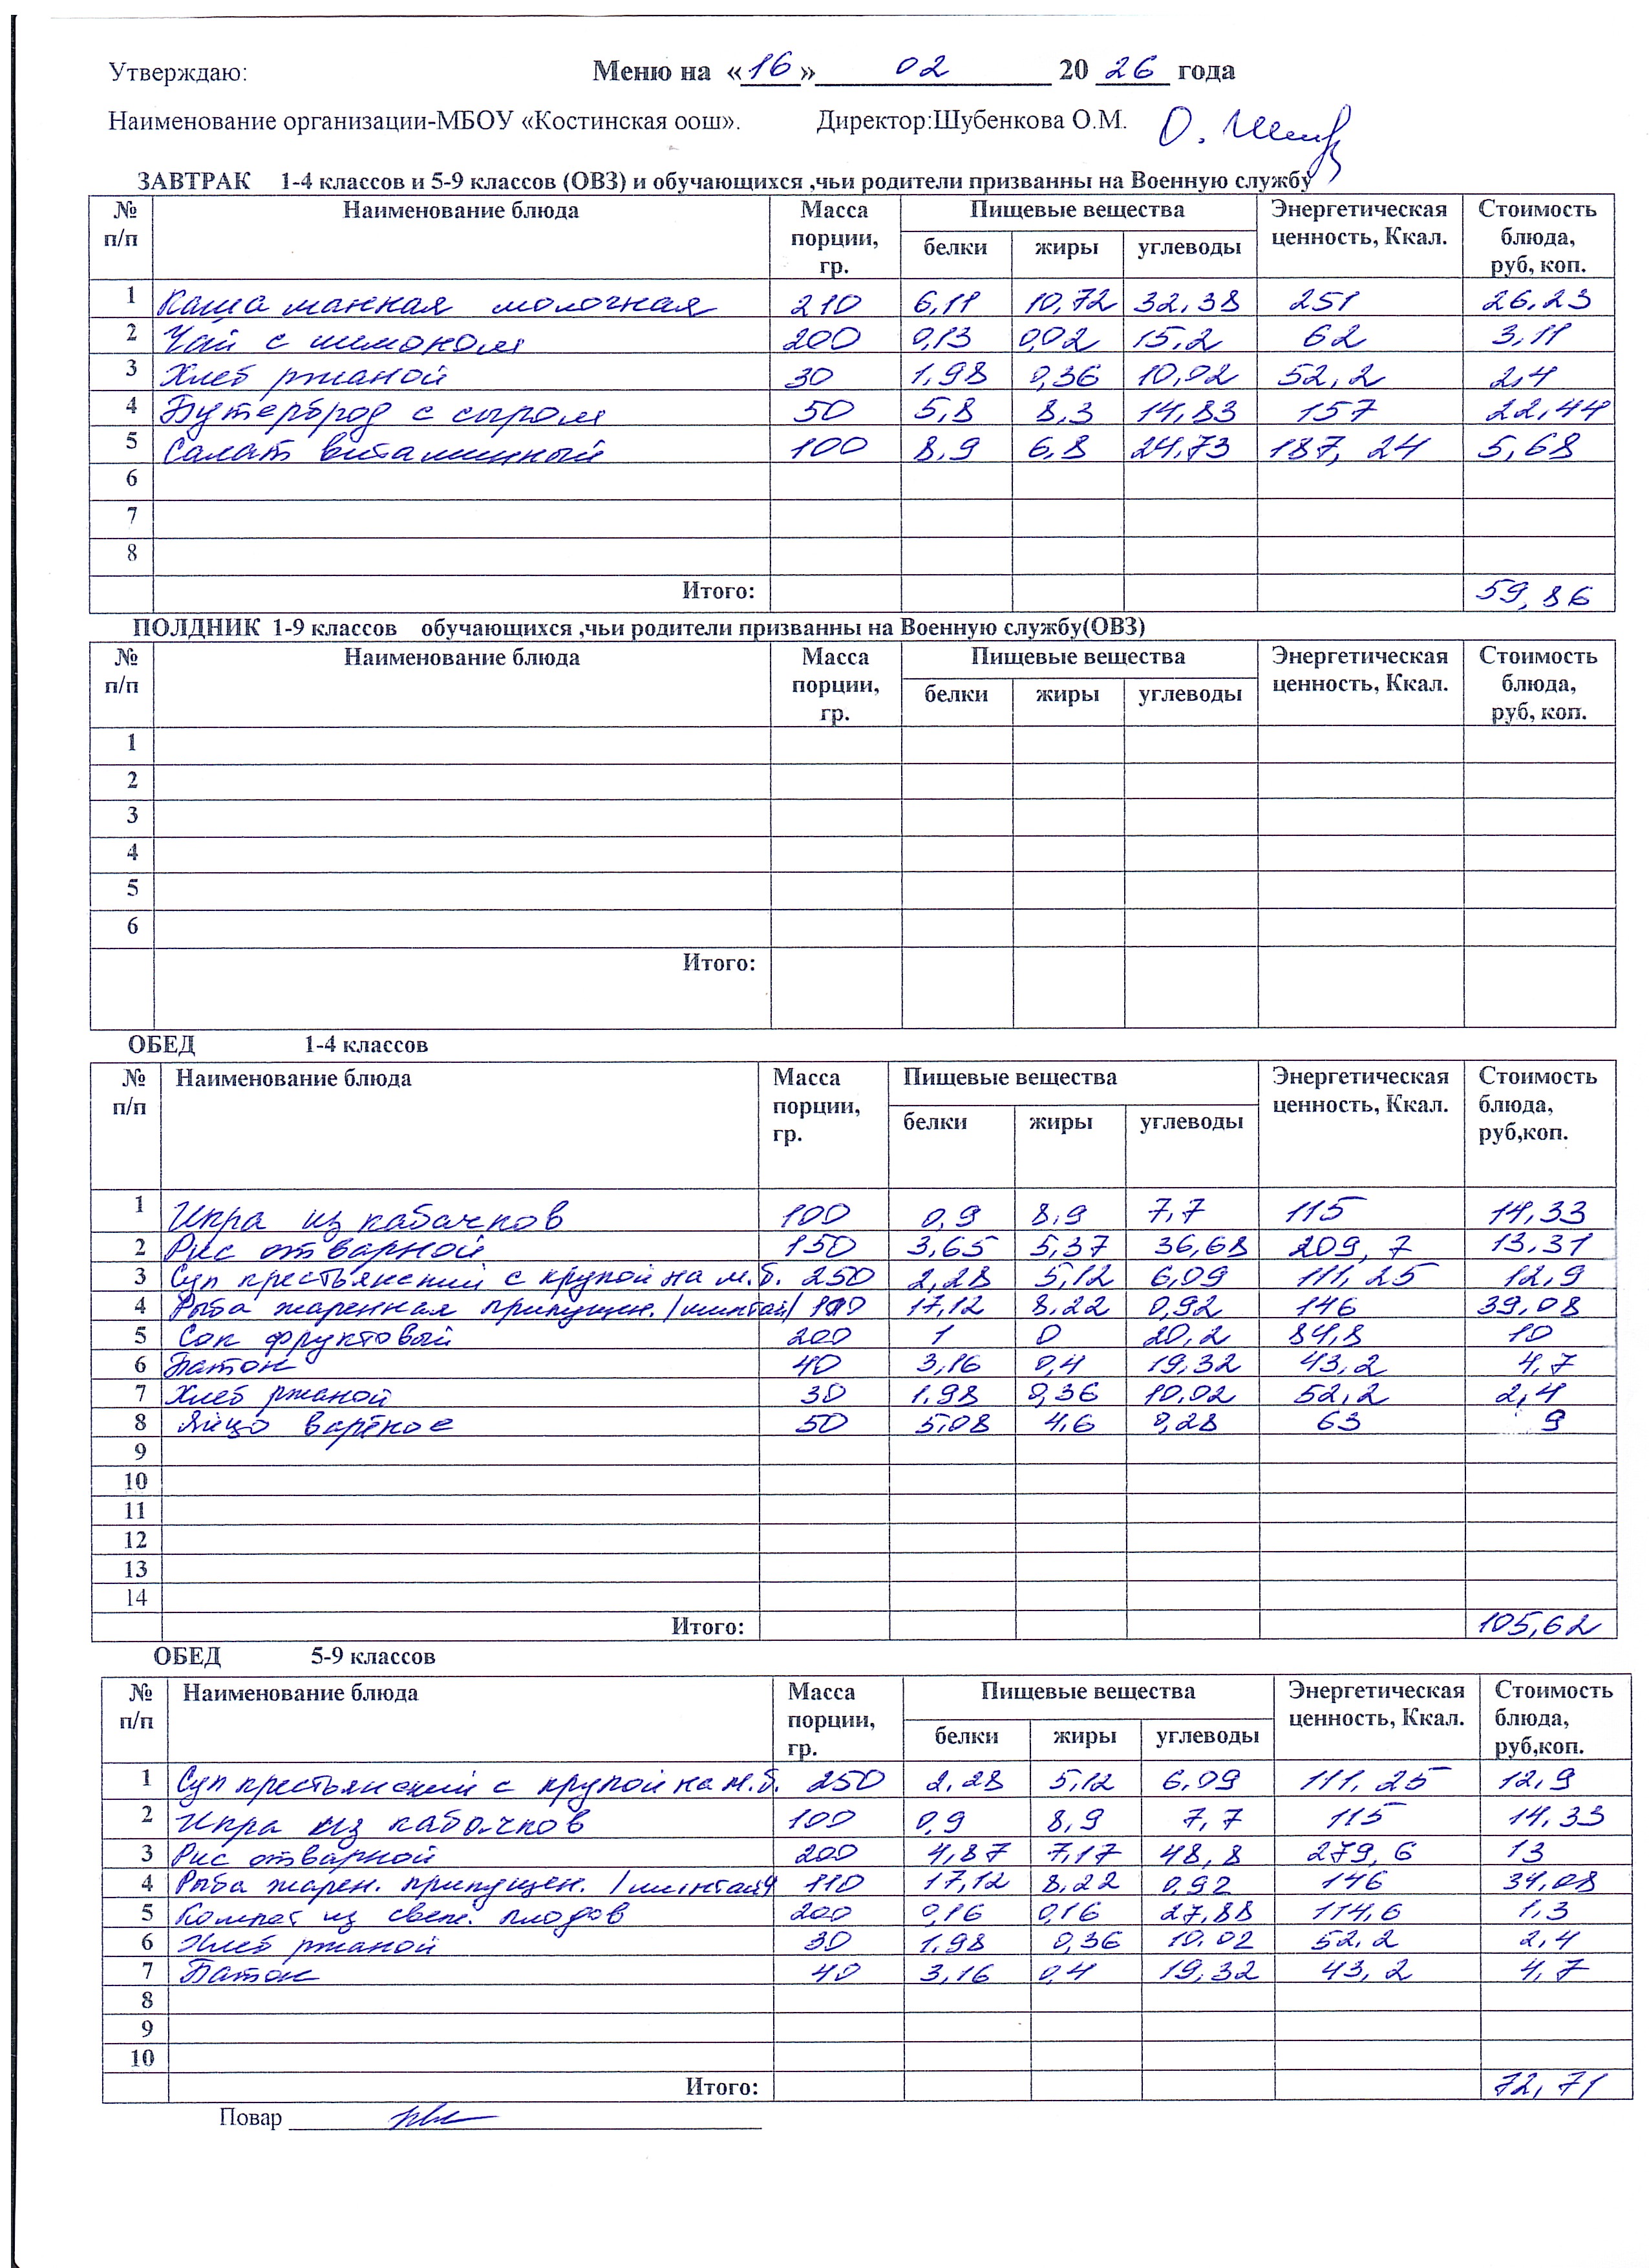 Утверждаю: Меню на «16» 02 20 26 года
Наименование организации-МБОУ «Костинская оош». Директор:Шубенкова О.М.
ЗАВТРАК 1-4 классов и 5-9 классов (ОВЗ) и обучающихся ,чьи родители призванны на Военную службу
№ п/п Наименование блюда Масса порции, гр. Пищевые вещества Энергетическая ценность, Ккал. Стоимость блюда, руб, коп.
белки жиры углеводы
1 Каша манная молочная 210 6,11 10,72 32,38 251 26,23
2 Чай с лимоном 200 0,13 0,02 15,2 62 3,11
3 Хлеб ржаной 30 1,98 0,36 10,02 52,2 2,4
4 Бутерброд с сыром 50 5,8 8,3 14,83 157 22,44
5 Салат витаминный 100 8,9 6,8 24,73 187,24 5,68
6
7
8
Итого: 59,86
ПОЛДНИК 1-9 классов обучающихся ,чьи родители призванны на Военную службу(ОВЗ)
№ п/п Наименование блюда Масса порции, гр. Пищевые вещества Энергетическая ценность, Ккал. Стоимость блюда, руб, коп.
белки жиры углеводы
1
2
3
4
5
6
Итого:
ОБЕД 1-4 классов
№ п/п Наименование блюда Масса порции, гр. Пищевые вещества Энергетическая ценность, Ккал. Стоимость блюда, руб,коп.
белки жиры углеводы
1 Икра из кабачков 100 0,9 8,9 7,7 115 14,33
2 Рис отварной 150 3,65 5,37 36,68 209,7 13,31
3 Суп крестьянский с крупой на м.б. 250 2,28 5,12 6,09 111,25 12,9
4 Рыба жаренная припущен. /минтай/ 17,12 8,22 0,92 146 39,08
5 Сок фруктовый 200 1 0 20,2 84,8 10
6 Батон 40 3,16 0,4 19,32 43,2 4,7
7 Хлеб ржаной 30 1,98 0,36 10,02 52,2 2,4
8 Яйцо варёное 50 5,08 4,6 0,28 63 9
9
10
11
12
13
14
Итого: 105,62
ОБЕД 5-9 классов
№ п/п Наименование блюда Масса порции, гр. Пищевые вещества Энергетическая ценность, Ккал. Стоимость блюда, руб,коп.
белки жиры углеводы
1 Суп крестьянский с крупой на м.б. 250 2,28 5,12 6,09 111,25 12,9
2 Икра из кабачков 100 0,9 8,9 7,7 115 14,33
3 Рис отварной 200 4,87 7,17 48,8 279,6 13
4 Рыба жарен. припущен. /минтай/ 110 17,12 8,22 0,92 146 34,08
5 Компот из свеж. плодов 200 0,16 0,16 27,88 114,6 1,3
6 Хлеб ржаной 30 1,98 0,36 10,02 52,2 2,4
7 Батон 40 3,16 0,4 19,32 43,2 4,7
8
9
10
Итого: 72,71
Повар